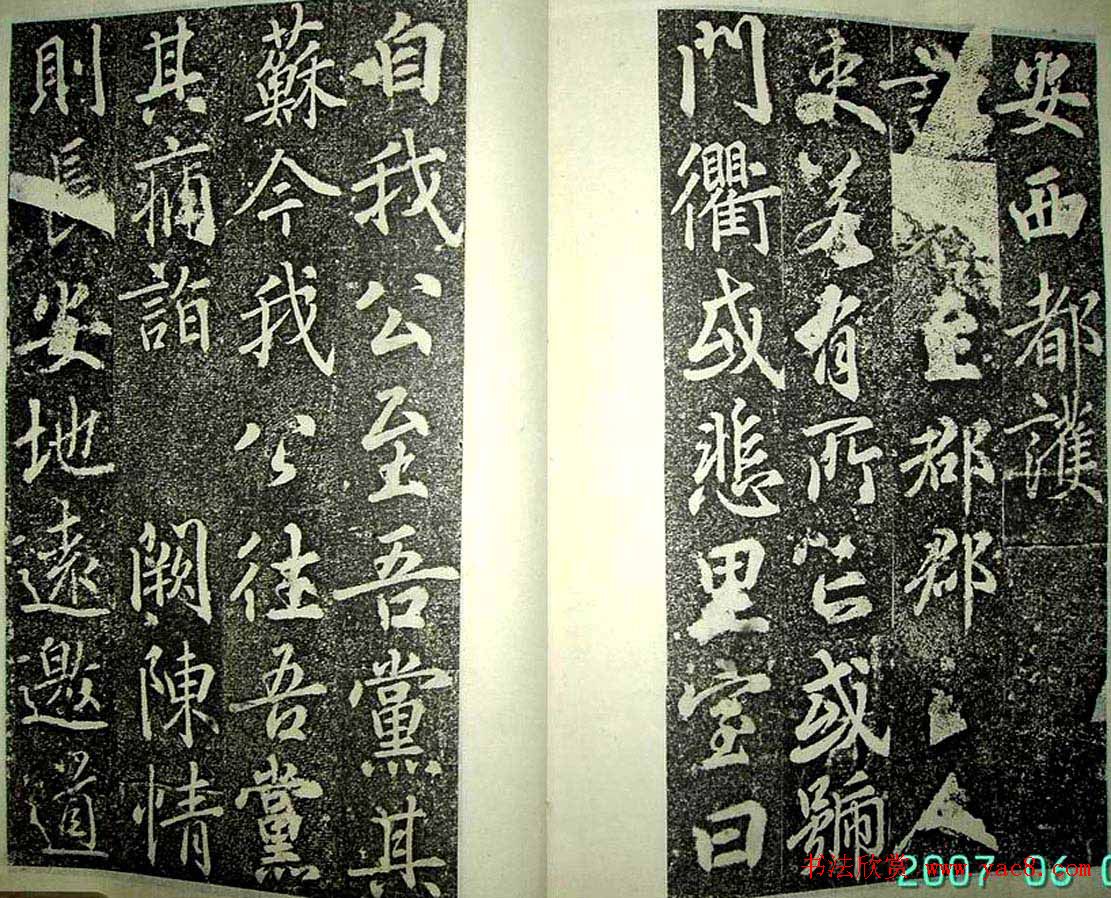 安西都護
詔 至郡郡 人
吏若有所亡或號
門衢或悲里室曰
自我公至吾黨其
蘇今我公往吾黨
其痡詣闕陳情
則長安地遠邀道
书法欣赏 www.yac8.com
2007 06 0